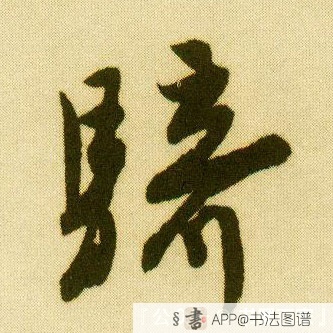 騎
§書 APP@书法图谱